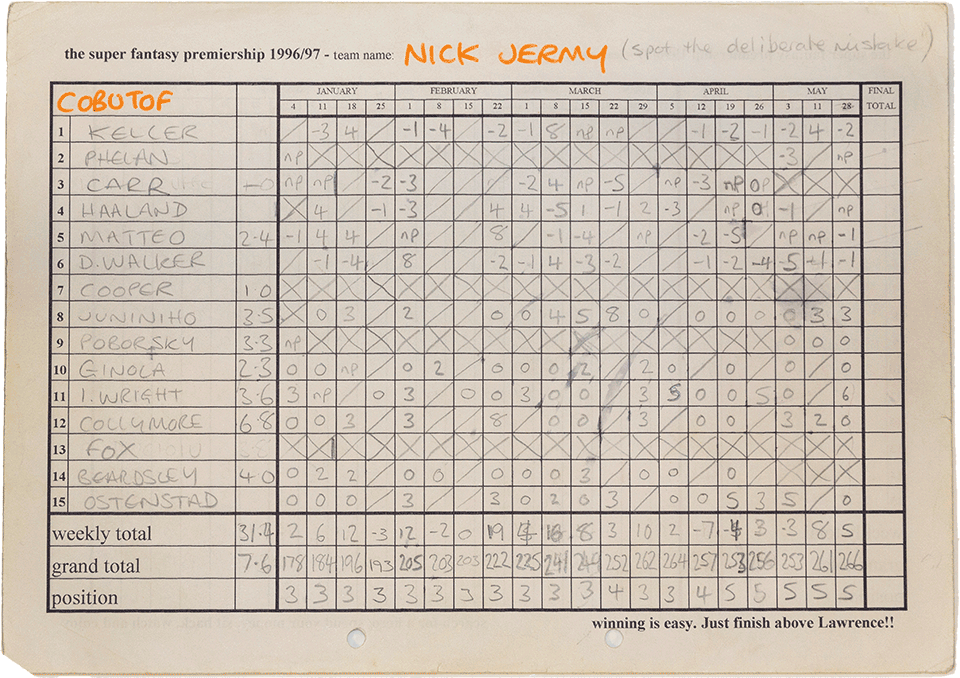 the super fantasy premiership 1996/97 - team name: NICK JERMY (spot the deliberate mistake)
COBUTOF JANUARY FEBRUARY MARCH APRIL MAY FINAL TOTAL
4 11 18 25 1 8 15 22 1 8 15 22 29 5 12 19 26 3 11 28
1 KELLER / -3 4 / -1 -4 / -2 -1 8 np np / / -1 -2 -1 -2 4 -2
2 PHELAN np X X X X X X X X X X X X X X X X -3 / np
3 CARR np np / -2 -3 / / / -2 4 np -5 / np -3 np X X X
4 HAALAND X 4 / -1 -3 / / 4 4 -5 1 -1 2 -3 / np 0 -1 / np
5 MATTEO 2.4 -1 4 4 / np / / 8 / -1 -4 / np / -2 -5 / np np -1
6 D.WALKER / -1 -4 / 8 / / -2 -1 4 -3 -2 / / -1 -2 -4 -5 +1 -1
7 COOPER 1.0 X X X X X X X X X X X X X X X X X X X X
8 JUNINIHO 3.5 X 0 3 / 2 / / 0 0 4 5 8 0 / 0 0 0 0 3 3
9 POBORSKY 3.3 np X X X X X X X X X X X X X X X X 0 0 0
10 GINOLA 2.3 0 0 np / 0 2 / 0 0 0 2 / 2 0 / 0 / 0 / 0
11 I.WRIGHT 3.6 3 np / 0 3 / 0 0 3 0 0 / 3 5 0 0 5 0 / 6
12 COLLYMORE 6.8 0 0 3 / 3 / / 8 / 0 0 / 3 / 0 0 / 3 2 0
13 FOX X X X X X X X X X X X X X X X X X X X X
14 BEARDSLEY 4.0 0 2 2 / 0 0 / 0 0 0 3 / 0 0 / 0 / X X X
15 OSTENSTAD 0 0 0 / 3 / / 3 0 2 0 3 / 0 0 5 3 5 / 0
weekly total 31.4 2 6 12 -3 12 -2 0 19 8 3 10 2 -7 3 -3 8 5
grand total 7.6 178 184 196 193 205 203 203 222 225 241 249 252 262 264 257 253 256 253 261 266
position 3 3 3 3 3 3 3 3 3 3 3 4 3 3 4 5 5 5 5 5
winning is easy. Just finish above Lawrence!!